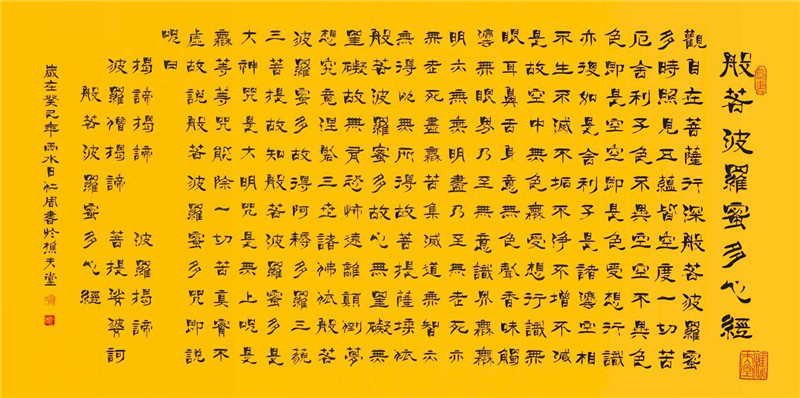 般若波羅蜜多心經
觀自在菩薩行深般若波羅蜜
多時照見五蘊皆空度一切苦
厄舍利子色不異空空不異色
色即是空空即是色受想行識
亦復如是舍利子是諸灋空相
不生不滅不垢不淨不增不減
是故空中無色無受想行識無
眼耳鼻舌身意無色聲香味觸
灋無眼界乃至無意識界無無
明亦無無明盡乃至無老死亦
無老死盡無苦集滅道無智亦
無得以無所得故菩提薩埵依
般若波羅蜜多故心無罣礙無
罣礙故無有恐怖遠離顛倒夢
想究竟涅槃三世諸佛依般若
波羅蜜多故得阿耨多羅三藐
三菩提故知般若波羅蜜多是
大神咒是大明咒是無上咒是
無等等咒能除一切苦真實不
虛故說般若波羅蜜多咒即說
咒曰
揭諦揭諦 波羅揭諦
波羅僧揭諦 菩提娑婆訶
般若波羅蜜多心經
歲在癸巳年雨水日仁周書於樵夫堂